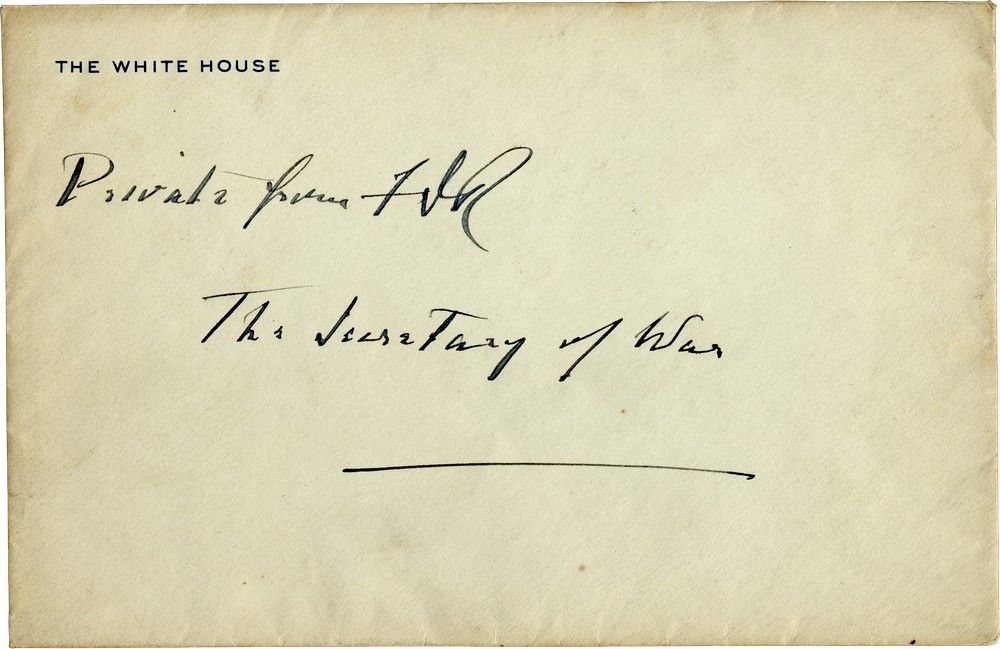 THE WHITE HOUSE
Private from FDR
The Secretary of War